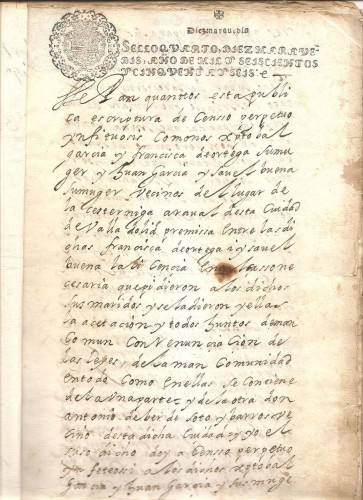 Diezmaravedis
SELLO QVARTO, DIEZ MARAVE-
DIS, AÑO DE MIL Y SEISCIENTOS
Y CINQVENTA Y SEIS.
Sepan quantos esta publi
ca escriptura de Censo perpetuo
ynfituosis Como nos xptobal
garcia y francisca de ortega su mu
ger y Juan Garcia y ysauel buena
su muger Vecinos del lugar de
la cesterniga araual desta Ciudad
de Valladolid premissa entre las di
chas francisca de ortega y ysauel
buena la licencia en tal casso ne
cesaria que pidieron a los dichos
sus maridos y se la dieron y ellas
la acetacion y todos Juntos de man
Comun Con Renunciacion de
las leyes de la man Comunidad
en todo Como en ellas se Contiene
de la Una parte y de la otra don
antonio de de soto y barros ve
cino desta dicha Ciudad y yo el
suso dicho doy a Censo perpetuo
yn feteosi a los dichos xptobal
Garcia y Juan Garcia y sus muge